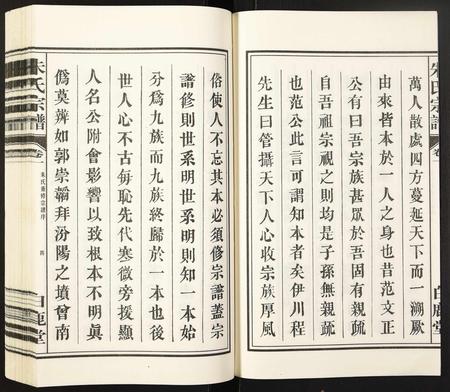 朱氏宗譜
卷一
白鹿堂
萬人散處四方蔓延天下而一溯厥
由來皆本於一人之身也昔范文正
公有曰吾宗族甚眾於吾固有親疏
自吾祖宗視之則均是子孫無親疏
也范公此言可謂知本者矣伊川程
先生曰管攝天下人心收宗族厚風
俗使人不忘其本必須修宗譜蓋宗
譜修則世系明世系明則知一本始
分爲九族而九族終歸於一本也後
世人心不古每恥先代寒微旁援顯
人名公附會影響以致根本不明眞
僞莫辨如郭崇韜拜汾陽之墳曾南
朱氏宗譜
卷一
朱氏重修宗譜序
四
白鹿堂